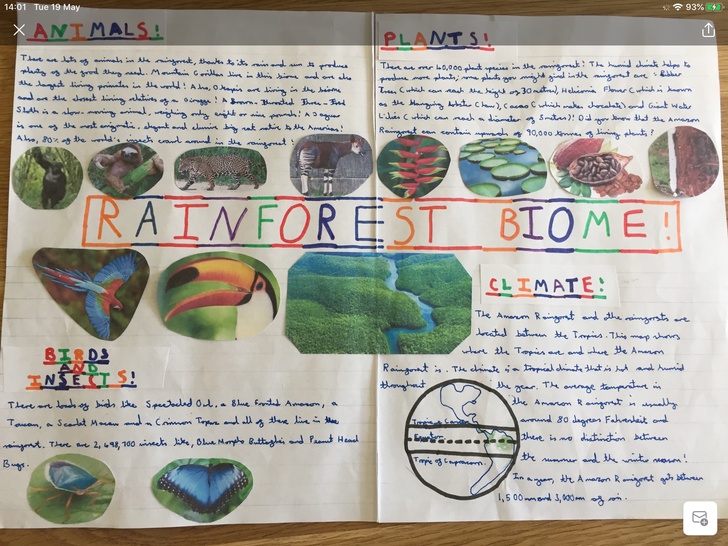 14:01 Tue 19 May
93%
ANIMALS!
There are lots of animals in the rainforest, thanks to its rain and sun to produce
plenty of the food they need. Mountain Gorillas live in this biome and are also
the largest living primates in the world! Also, Okapis are living in the biome
and are the closest living relatives of a Giraffe! A Brown-Throated Three-Toed
Sloth is a slow-moving animal, weighing only eight or nine pounds! A Jaguar
is one of the most enigmatic, elegant and elusive big cat native to the Americas!
Also, 80% of the world's insects crawl around in the rainforest!
PLANTS!
There are over 40,000 plant species in the rainforest! The humid climate helps to
produce more plants; some plants you might find in the rainforest are: Rubber
Tree (which can reach the height of 30 metres) Heliconia Flower (which is known
as the Hanging Lobster Claw), Cacao (which makes chocolate) and Giant Water
Lilies (which can reach a diameter of 3 metres)! Did you know that the Amazon
Rainforest can contain upwards of 90,000 tonnes of living plants?
RAINFOREST BIOME!
BIRDS
AND
INSECTS!
There are loads of birds like Spectacled Owl, a Blue Fronted Amazon, a
Toucan, a Scarlet Macaw and a Crimson Topaz and all of these live in the
rainforest. There are 2,498,700 insects like, Blue Morpho Butterflies and Peanut Head
Bugs.
CLIMATE!
The Amazon Rainforest and other rainforests are
located between the Tropics. This map shows
where the Tropics are and where the Amazon
Rainforest is. The climate is a tropical climate that is hot and humid
throughout the year. The average temperature in
the Amazon Rainforest is usually
around 80 degrees Fahrenheit and
there is no distinction between
the summer and the winter season!
In a year, the Amazon Rainforest gets between
1,500mm and 3,000mm of rain.
Tropic of Cancer
Equator
Tropic of Capricorn.